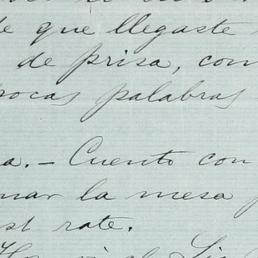 de que llegaste
de prisa, con
pocas palabras
a. - Cuento con
mar la mesa
st rate.